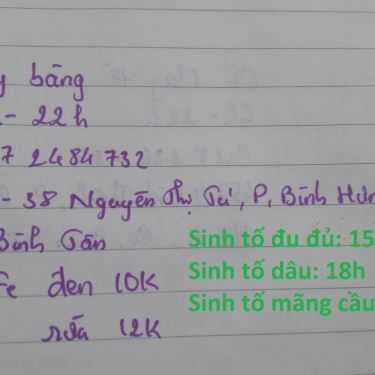 băng
- 22h
7 2484732
- 38 Nguyễn Thị Tú, P, Bình Hưn
Bình Tân
đen 10K
sữa 12K
Sinh tố đu đủ: 15
Sinh tố dâu: 18h
Sinh tố mãng cầu